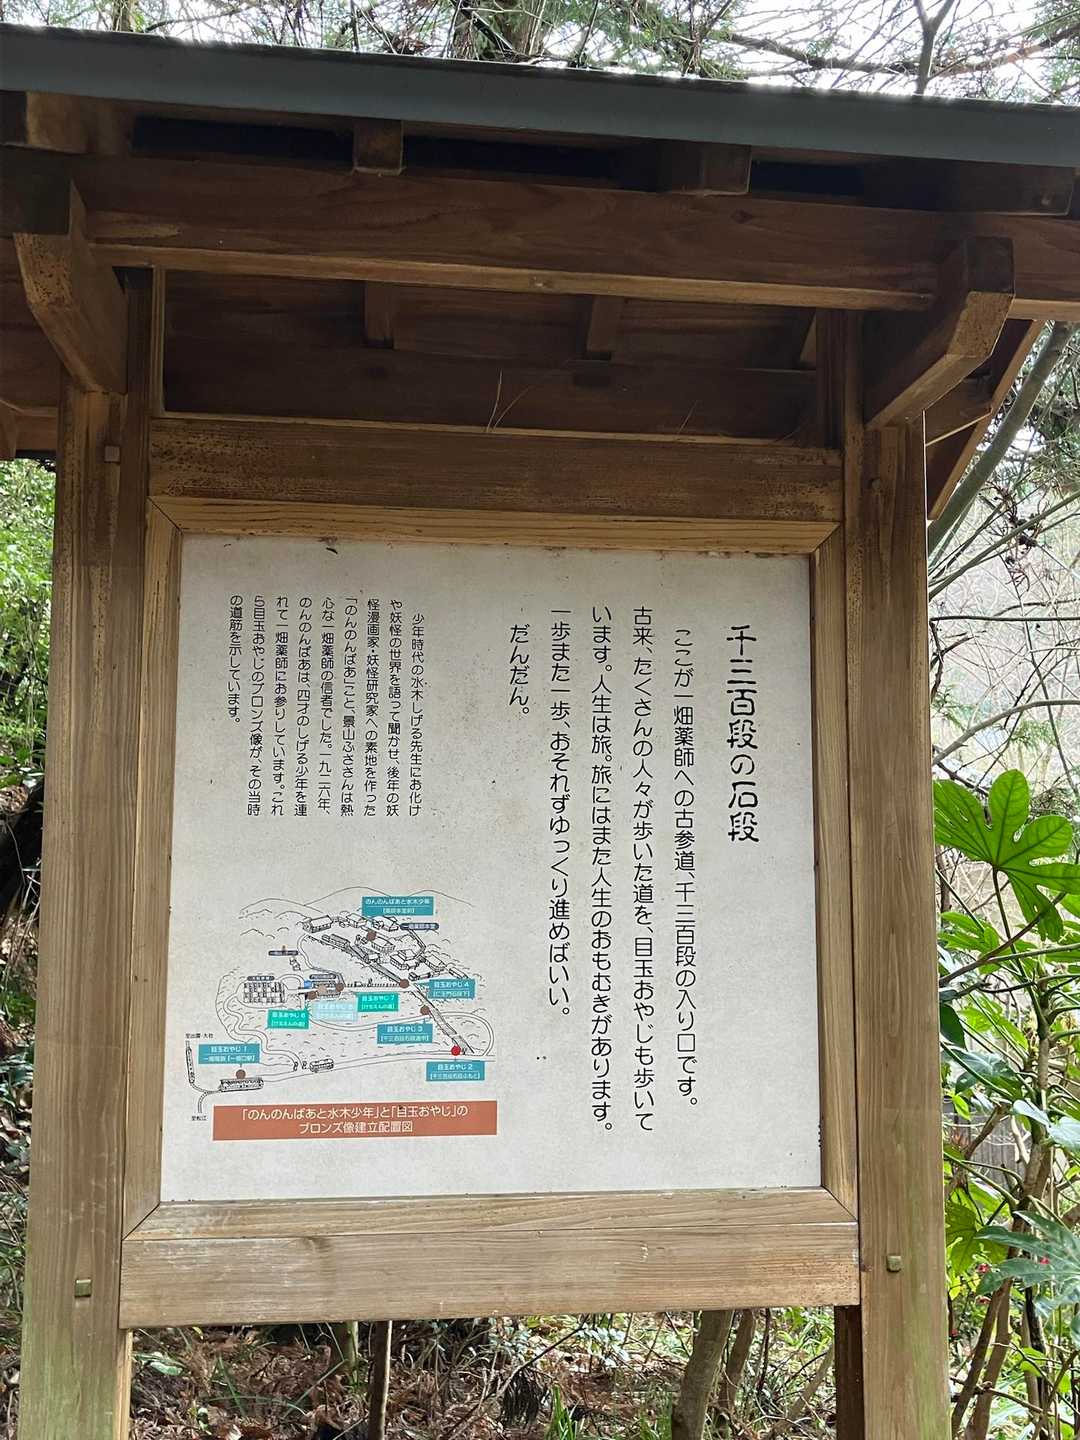 千三百段の石段
ここが一畑薬師への古参道、千三百段の入り口です。
古来、たくさんの人々が歩いた道を、目玉おやじも歩いて
います。人生は旅。旅にはまた人生のおもむきがあります。
一歩また一歩、おそれずゆっくり進めばいい。
だんだん。
少年時代の水木しげる先生にお化け
や妖怪の世界を語って聞かせ、後年の妖
怪漫画家・妖怪研究家への素地を作った
「のんのんばあ」こと、景山ふささんは熱
心な一畑薬師の信者でした。一九二六年、
のんのんばあは、四才のしげる少年を連
れて一畑薬師にお参りしています。これ
ら目玉おやじのブロンズ像が、その当時
の道筋を示しています。
のんのんばあと水木少年
【薬師本堂前】
一畑薬師本堂
目玉おやじ 4
【仁王門石段下】
目玉おやじ 7
【けちえんの道】
目玉おやじ 6
【けちえんの道】
目玉おやじ 3
【千三百段石段途中】
目玉おやじ 2
【千三百段石段ふもと】
至出雲・大社
目玉おやじ 1
一畑電鉄【一畑口駅】
至松江
「のんのんばあと水木少年」と「目玉おやじ」の
ブロンズ像建立配置図